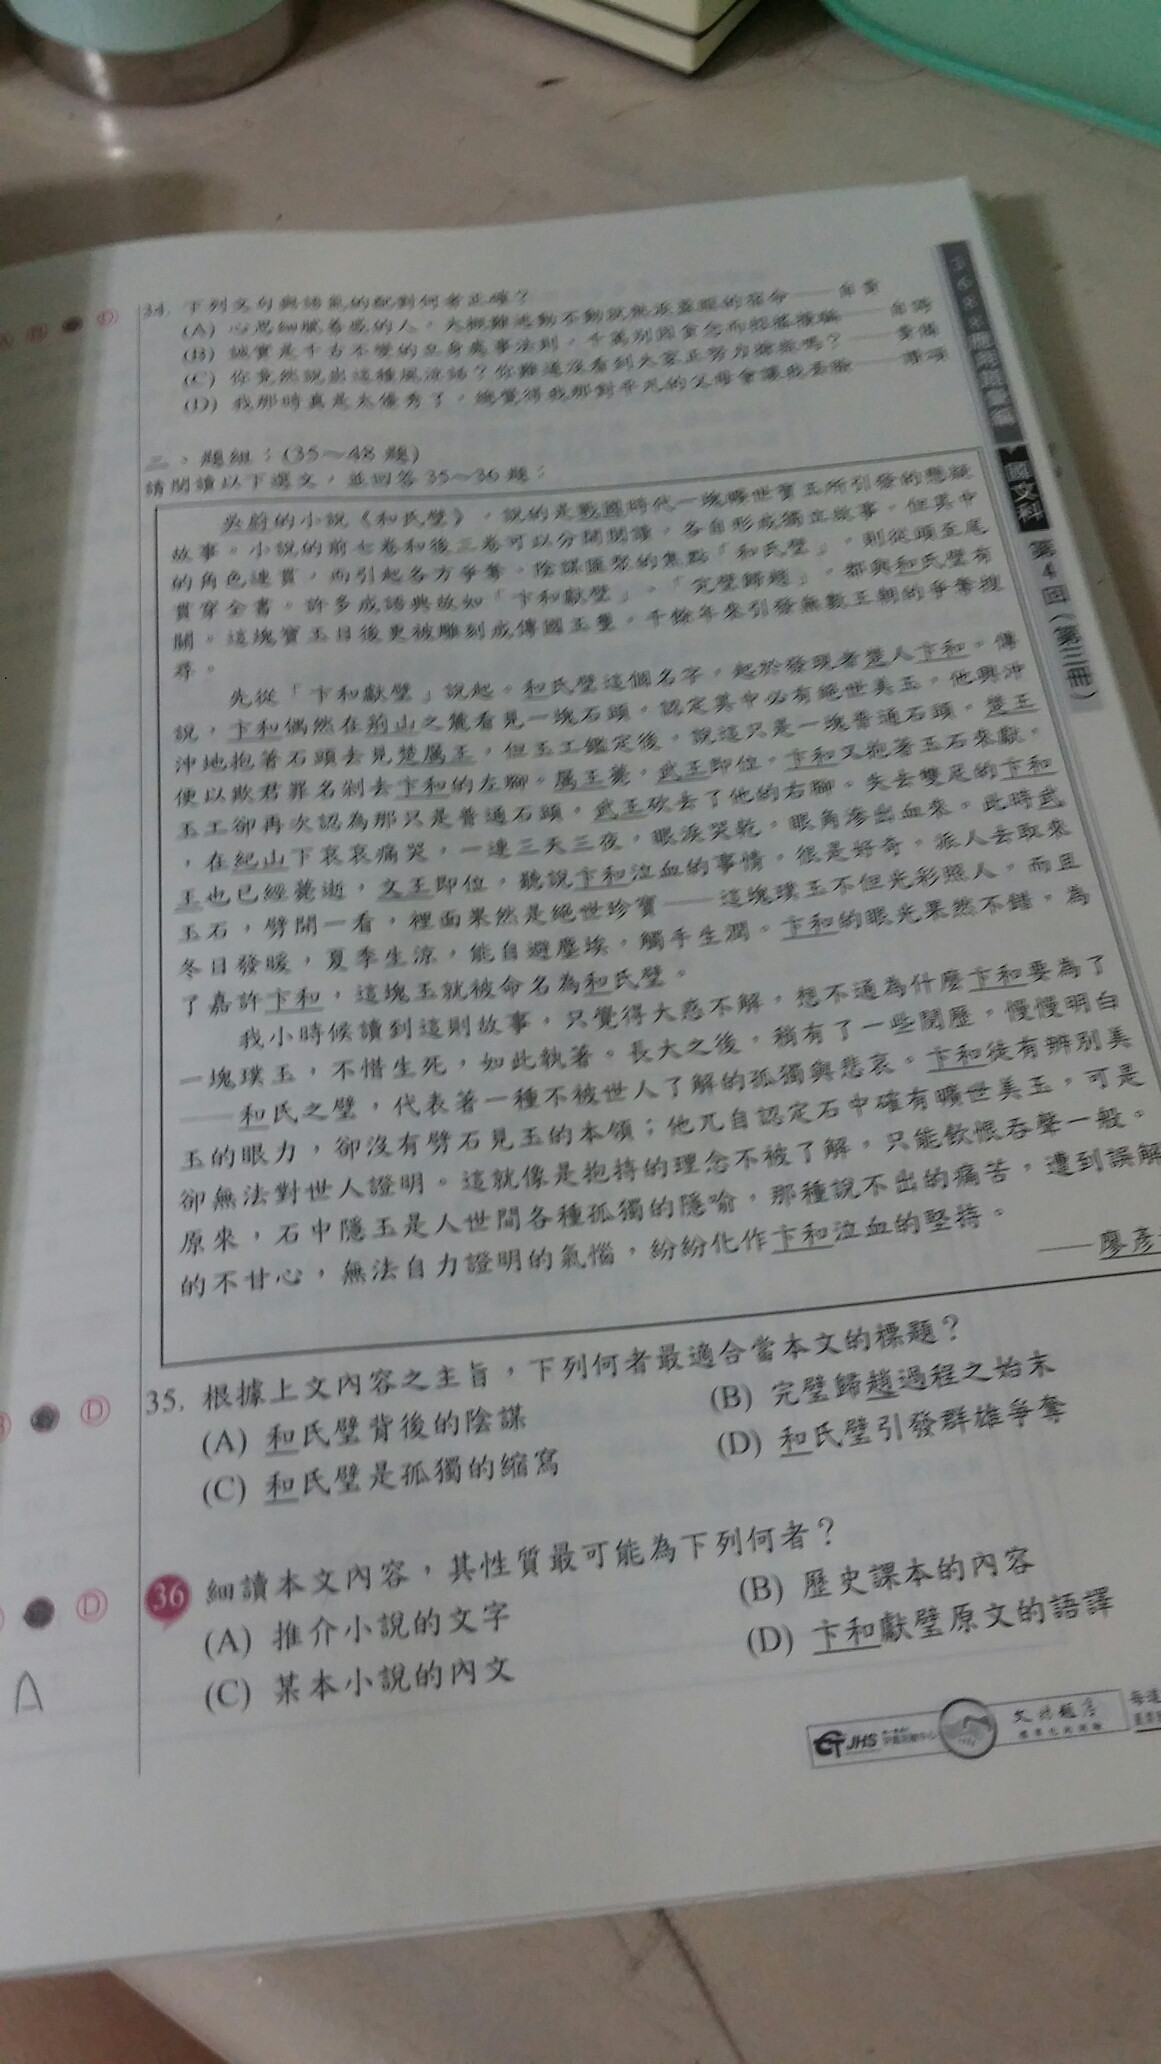 34. 下列文句與語氣的配對何者正確？
(A) 心思細膩善感的人，大概難逃動不動就
(B) 誠實是千古不變的立身處事法則，千萬別因貪念而
(C) 你竟然說出這種風涼話？你難道沒看到大家正努力 嗎？
(D) 我那時真是太優秀了，總覺得我那對平凡的父母會讓我丟臉
二、題組：(35～48 題)
請閱讀以下選文，並回答 35～36 題：
的小說《和氏璧》，說的是戰國時代一塊曠世寶玉所引發的懸疑
故事。小說的前七卷和後三卷可以分開閱讀，各自形成獨立故事，但其中
的角色連貫，而引起各方爭奪、陰謀匯聚的焦點「和氏璧」，則從頭至尾
貫穿全書。許多成語典故如「卞和獻璧」、「完璧歸趙」，都與和氏璧有
關。這塊寶玉日後更被雕刻成傳國玉璽，千餘年來引發無數王朝的爭奪搜
尋。
先從「卞和獻璧」說起。和氏璧這個名字，起於發現者楚人卞和。傳
說，卞和偶然在荊山之麓看見一塊石頭，認定其中必有絕世美玉，他興沖
沖地抱著石頭去見楚厲王，但玉工鑑定後，說這只是一塊普通石頭，楚王
便以欺君罪名剁去卞和的左腳。厲王薨，武王即位，卞和又抱著玉石來獻，
玉工卻再次認為那只是普通石頭，武王砍去了他的右腳。失去雙足的卞和
，在紀山下哀哀痛哭，一連三天三夜，眼淚哭乾，眼角滲出血來。此時武
王也已經薨逝，文王即位，聽說卞和泣血的事情，很是好奇，派人去取來
玉石，劈開一看，裡面果然是絕世珍寶——這塊璞玉不但光彩照人，而且
冬日發暖，夏季生涼，能自避塵埃，觸手生潤。卞和的眼光果然不錯，為
了嘉許卞和，這塊玉就被命名為和氏璧。
我小時候讀到這則故事，只覺得大惑不解，想不通為什麼卞和要為了
一塊璞玉，不惜生死，如此執著。長大之後，稍有了一些閱歷，慢慢明白
——和氏之璧，代表著一種不被世人了解的孤獨與悲哀。卞和徒有辨別美
玉的眼力，卻沒有劈石見玉的本領；他兀自認定石中確有曠世美玉，可是
卻無法對世人證明。這就像是抱持的理念不被了解，只能飲恨吞聲一般。
原來，石中隱玉是人世間各種孤獨的隱喻，那種說不出的痛苦，遭到誤解
的不甘心，無法自力證明的氣惱，紛紛化作卞和泣血的堅持。
——廖彥
35. 根據上文內容之主旨，下列何者最適合當本文的標題？
(A) 和氏璧背後的陰謀
(B) 完璧歸趙過程之始末
(C) 和氏璧是孤獨的縮寫
(D) 和氏璧引發群雄爭奪
36 細讀本文內容，其性質最可能為下列何者？
(A) 推介小說的文字
(B) 歷史課本的內容
(C) 某本小說的內文
(D) 卞和獻璧原文的語譯
D
D
A
國文科
第4回(第三冊)
JHS